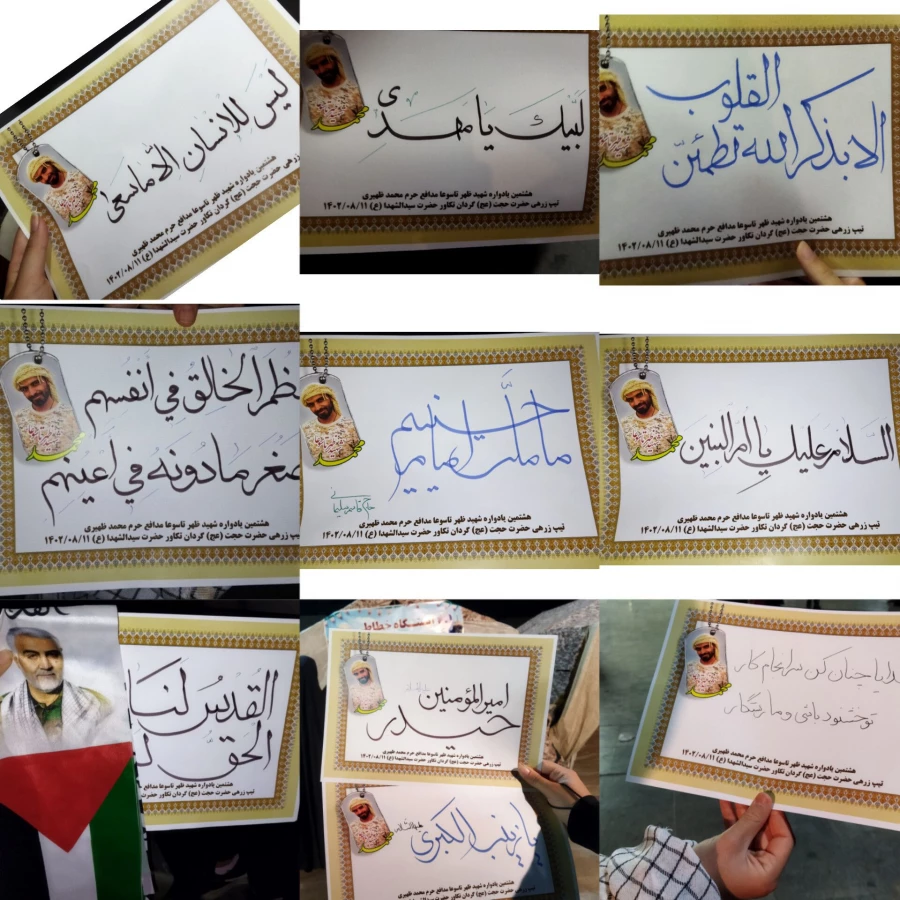 لَیْسَ لِلْاِنْسانِ اِلّا ماسَعیٰ
هشتمین یادواره شهید ظهر تاسوعا مدافع حرم محمد ظهیری
تیپ زرهی حضرت حجت (عج) گردان تکاور حضرت سیدالشهدا (ع) ۱۴۰۲/۰۸/۱۱
لَبَّیْكَ یا مَهدی
هشتمین یادواره شهید ظهر تاسوعا مدافع حرم محمد ظهیری
تیپ زرهی حضرت حجت (عج) گردان تکاور حضرت سیدالشهدا (ع) ۱۴۰۲/۰۸/۱۱
القلوب
الا بذکر الله تطمئنّ
هشتمین یادواره شهید ظهر تاسوعا مدافع حرم محمد ظهیری
تیپ زرهی حضرت حجت (عج) گردان تکاور حضرت سیدالشهدا (ع) ۱۴۰۲/۰۸/۱۱
ظُمَ الْخالِقُ فی اَنفُسِهِم
صَغُرَ مادُونَهُ فی اَعْیُنِهِم
هشتمین یادواره شهید ظهر تاسوعا مدافع حرم محمد ظهیری
تیپ زرهی حضرت حجت (عج) گردان تکاور حضرت سیدالشهدا (ع) ۱۴۰۲/۰۸/۱۱
ما ملت امام حسینیم
حاج قاسم سلیمانی
هشتمین یادواره شهید ظهر تاسوعا مدافع حرم محمد ظهیری
تیپ زرهی حضرت حجت (عج) گردان تکاور حضرت سیدالشهدا (ع) ۱۴۰۲/۰۸/۱۱
اَلسَّلامُ عَلیكِ یا اُمَّ البَنین
هشتمین یادواره شهید ظهر تاسوعا مدافع حرم محمد ظهیری
تیپ زرهی حضرت حجت (عج) گردان تکاور حضرت سیدالشهدا (ع) ۱۴۰۲/۰۸/۱۱
القُدسُ لَنا
الحَق
هشتمین یادواره شهید ظهر تاسوعا مدافع حرم محمد
تیپ زرهی حضرت حجت (عج) گردان تکاور حضرت
امیرالمؤمنین
حیدر
هشتمین یادواره شهید ظهر تاسوعا مدافع حرم محمد ظهیری
تیپ زرهی حضرت حجت (عج) گردان تکاور حضرت سیدالشهدا (ع) ۱۴۰۲/۰۸/۱۱
یا زینب الکبری
هشتمین یادواره شهید ظهر تاسوعا مدافع حرم محمد ظهیری
تیپ زرهی حضرت حجت (عج) گردان تکاور حضرت سیدالشهدا (ع) ۱۴۰۲/۰۸/۱۱
چنان کن سرانجام کار
تو خشنود باشی و ما رستگار
هشتمین یادواره شهید ظهر تاسوعا مدافع حرم محمد ظهیری
تیپ زرهی حضرت حجت (عج) گردان تکاور حضرت